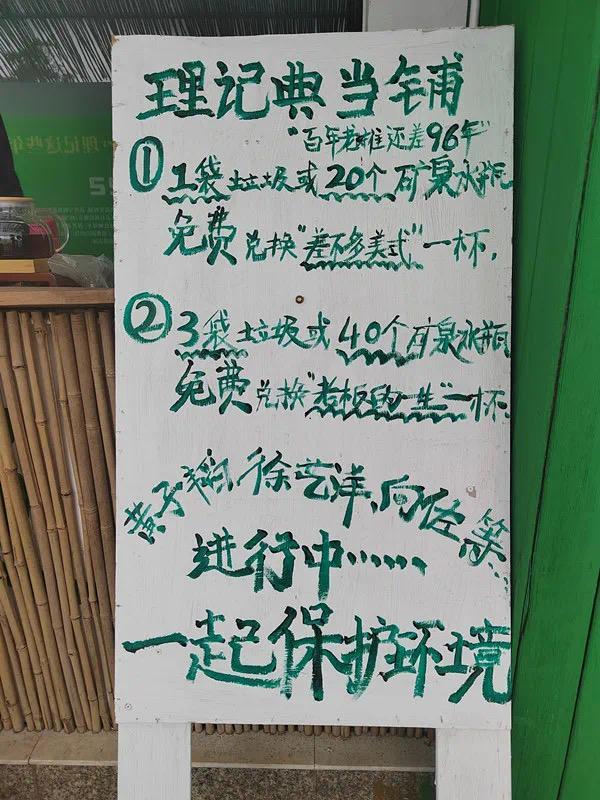 理记典当铺
"百年老雉还差96年"
① 1袋垃圾或20个矿泉水瓶
免费兑换"差不多美式"一杯.
② 3袋垃圾或40个矿泉水瓶
免费兑换"老板的一生"一杯.
黄子韬、徐艺洋、向佐等...
进行中……
一起保护环境